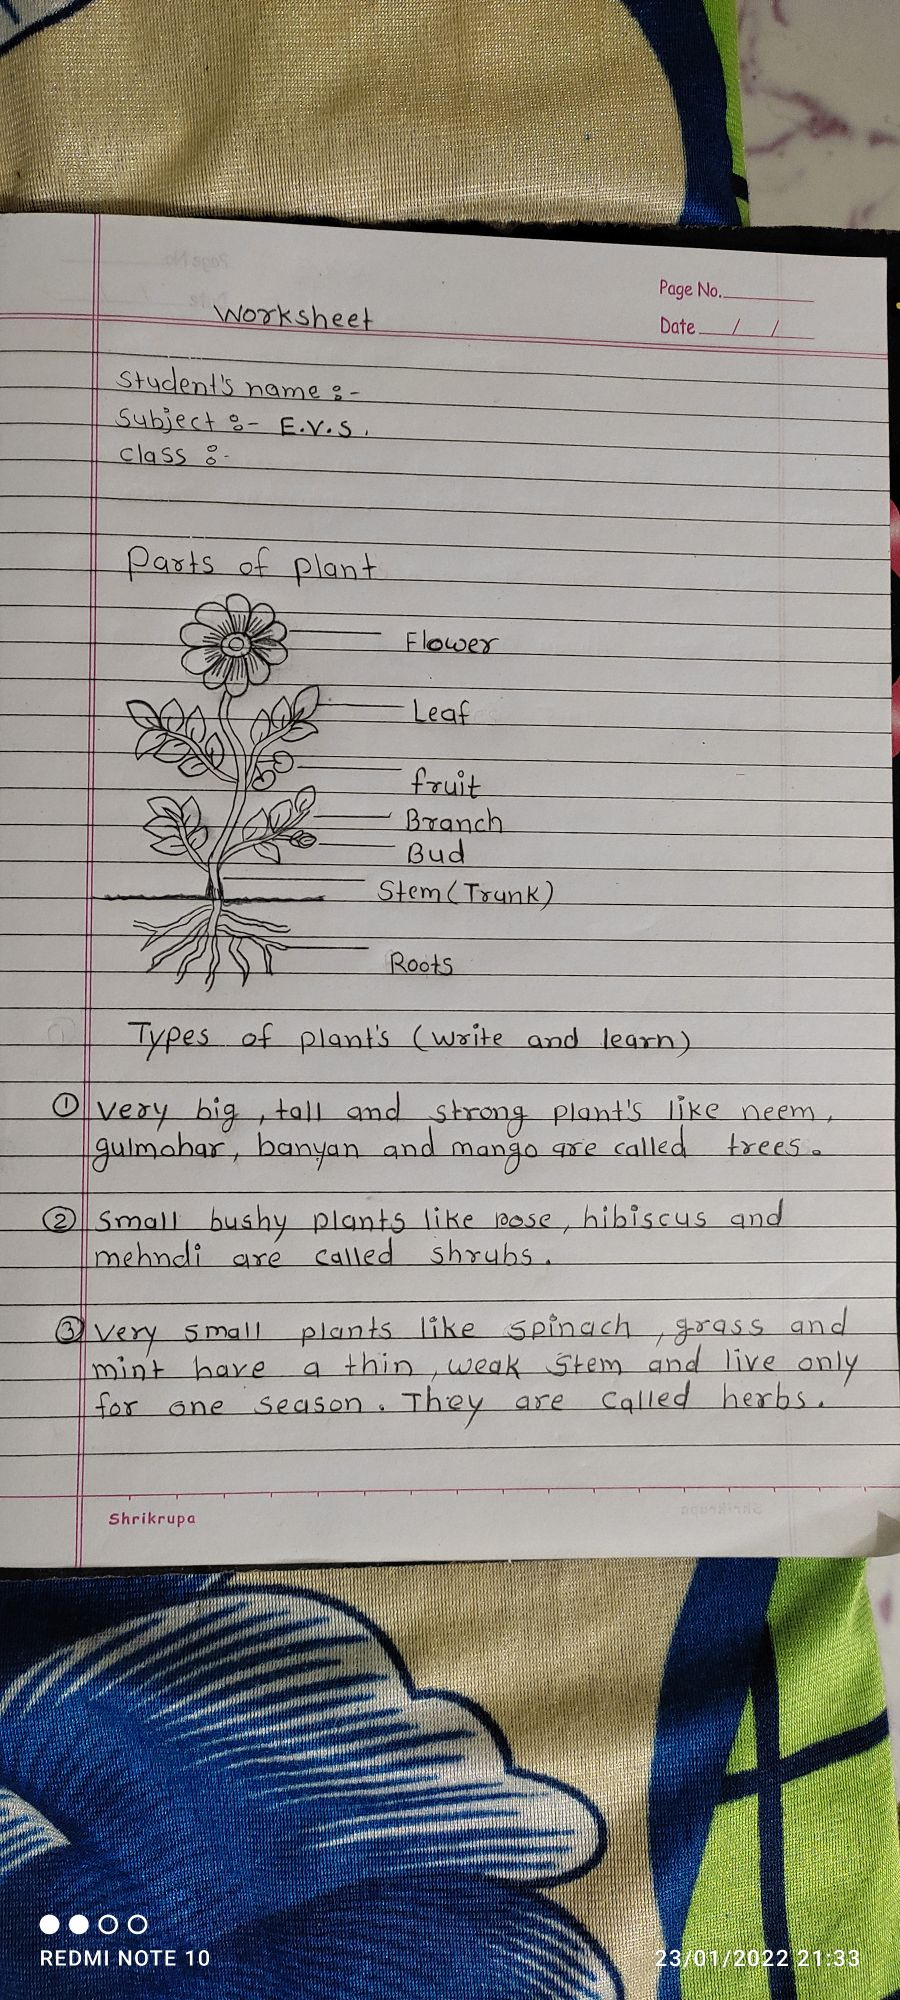 Page No.
Worksheet
Date / /
Student's name :-
Subject :- E.V.S.
class :-
Parts of plant
Flower
Leaf
fruit
Branch
Bud
Stem (Trunk)
Roots
Types of plant's (write and learn)
① Very big, tall and strong plant's like neem,
gulmohar, banyan and mango are called trees.
② Small bushy plants like rose, hibiscus and
mehndi are called shrubs.
③ Very small plants like spinach, grass and
mint have a thin, weak stem and live only
for one season. They are called herbs.
Shrikrupa
REDMI NOTE 10
23/01/2022 21:33